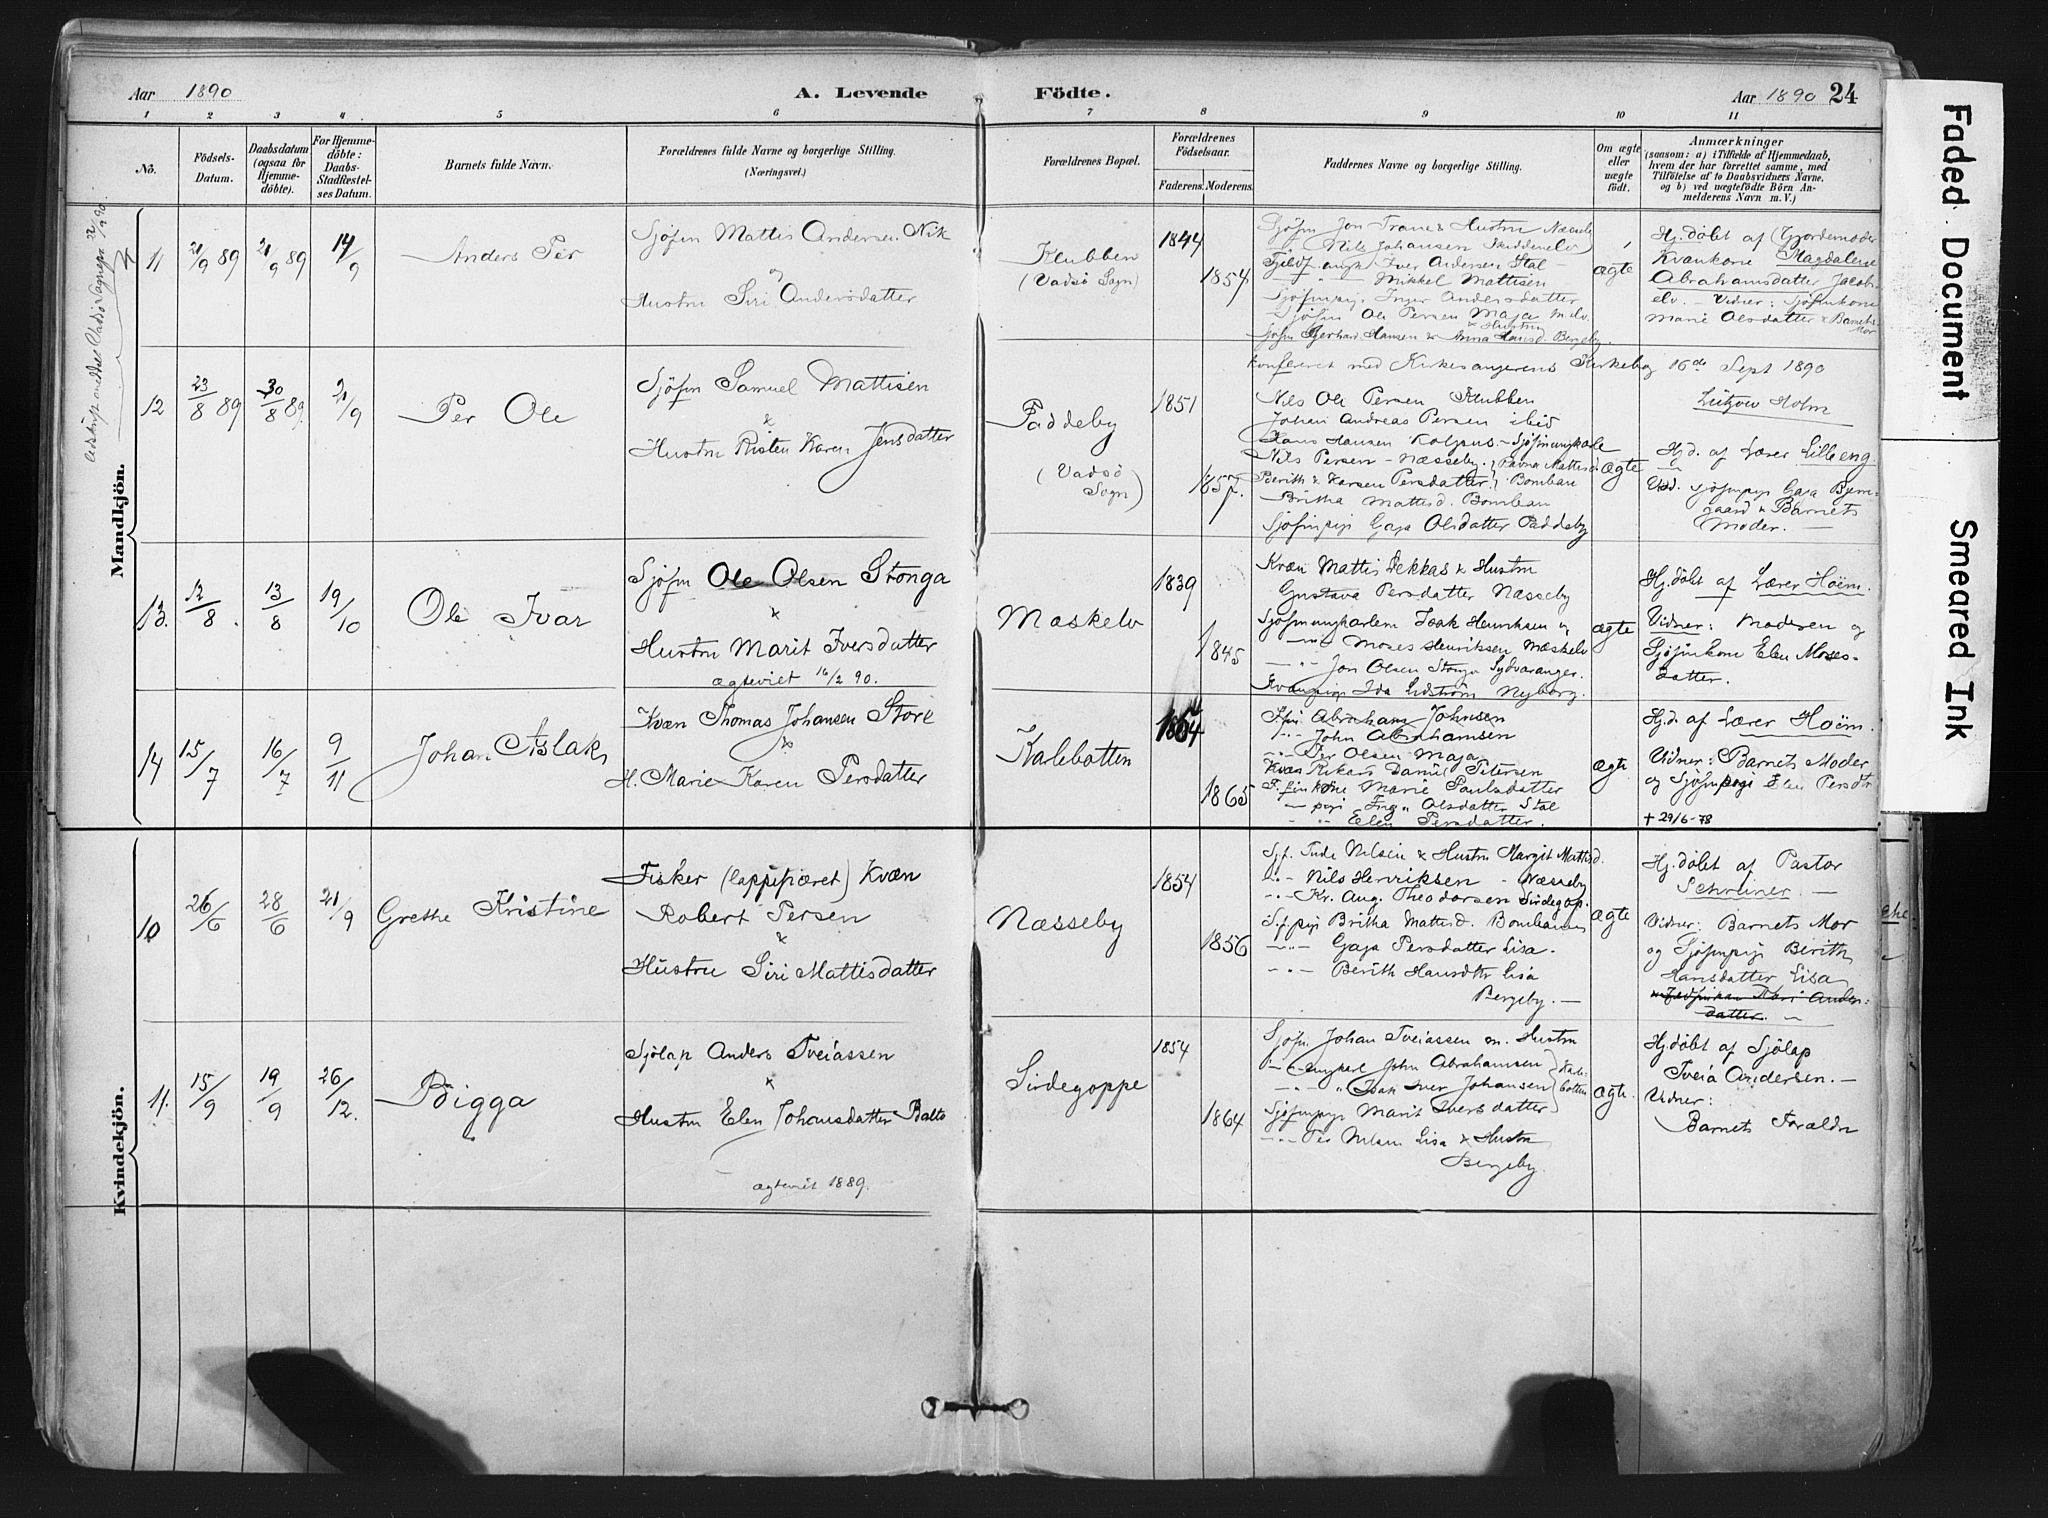 Aar 1890
A. Levende Födte.
Aar 1890 24
1 2 3 4 5 6 7 8 9 10 11
No.
Födsels-Datum.
Daabsdatum (ogsaa for Hjemmedöbte).
For Hjemmedöbte: Daabs-Stadfæstelses Datum.
Barnets fulde Navn.
Forældrenes fulde Navne og borgerlige Stilling.
(Næringsvei.)
Forældrenes Bopæl.
Forældrenes Födselsaar.
Faderens. Moderens.
Faddernes Navne og borgerlige Stilling.
Om ægte eller uægte födt.
Anmærkninger
(saasom: a) i Tilfælde af Hjemmedaab,
hvem der har forrettet samme, med
Tilföielse af to Daabsvidners Navne,
og b) ved uægtefödte Börn An-
melderens Navn m. V.)
Mandkjön.
11 21/9 89 21/9 89 14/9
Anders Per
Sjöfin Mattis Andersen Nik
Hustru Siri Andersdatter
Klubben
(Vadsö Sogn)
1844
1854
Nils Johansen
Iver Andersen Stal
Mikkel Mattisen
Inger Andersdatter
Ole Persen Maja
Gerhard Hansen & Anna Hansd. Bergeby.
ægte
Hj.döbt af Gjordemoder
Kvænkone Magdalene
Abrahamsdatter Jacobs-
elv. - Vidner: Sjöfinkone
Marie Olsdatter & Barnets
Mor
konfereret med Kirkesangerens Kirkebog 16de Sept 1890
Lützow Holm
12 23/8 89 30/8 89 21/9
Per Ole
Sjöfin Samuel Mattisen
&
Hustru Risten Karen Jensdatter
Paddeby
(Vadsö
Sogn)
1851
1857.
Nils Ole Persen Klubben
Johan Andreas Persen ibid
Nils Persen - Næsseby.
Britha Mattisd. Bomban
Sjöfinpige Gaja Olsdatter Paddeby
ægte
Hjd. af Lærer Lilleeng
Barnets
Moder. -
13. 12/8. 13/8 19/10
Ole Ivar
Sjöfin Ole Olsen Stonga
&
Hustru Marit Iversdatter
ægteviet 16/2 90.
Mæskelv
1839
1845
Kvæn Mattis Pekkas & Hustru
Gustava Persdatter Næsseby
Sjöfinungkarlene Isak Henriksen og
Moses Henriksen Mæskelv
Jon Olsen Stonga Sydvaranger.
Kvænpige Ida Lidström Nyborg.
ægte
Hj.döbt af Lærer Hoëm.
Vidner: Moderen og
Sjöfinkone Elen Moses-
datter.
14 15/7 16/7 9/11
Johan Aslak
Kvæn Thomas Johansen Store
&
H. Marie Karen Persdatter
Kalebotten
1865
Abraham Johnsen
John Abrahamsen
Per Olsen Maja
Kvæn Rikard Daniel Petersen
Marie Paulsdatter
Olsdatter Stal
Elen Persdatter.
ægte
Hj.d. af Lærer Hoëm.
Vidner: Barnets Moder
og Sjöfinpige Elen Persdtr
+ 29/6-78
Kvindekjön.
10 26/6 28/6 21/9
Grethe Kristine
Fisker (lappisficeret) Kvæn
Robert Persen
&
Hustru Siri Mattisdatter
Næsseby
1854
1856
Nilsen & Hustru Margit Mattisd.
Nils Henriksen - Næsseby
Kr. Aug. Theodorsen Sirdegop.
Britha Mattisd. Bomban
Gaja Persdatter Lisa.
Berith Hansdtr Lisa
Bergeby. -
ægte
Hj.döbt af Pastor
Schreiner. -
Vidner: Barnets Mor
og Sjöfinpige Berith
Hansdatter Lisa
11. 15/9 19/9 26/12.
Bigga
Sjölap Anders Tveiassen
&
Hustru Elen Johansdatter Balto
ægteviet 1889.
Sirdegoppe
1854
1864
Sjöfin Johan Tveiassen m. Hustru
John Abrahamsen
Isak Iver Johansen
Kalebotten
Sjöfinpige Marit Iversdatter
Per Nilsen Lisa & Hustru
Bergeby.
ægte.
Hj.döbt af Sjölap
Tveia Andersen. -
Vidner:
Barnets Forældre
Faded Document
Smeared Ink